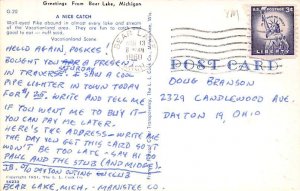 Greetings from Bear Lake, Michigan
O-25
A NICE CATCH
Wall-eyed Pike abound in almost every lake and stream
of the Vacationland area. They are fun to catch and
good to eat - nuff said.
Vacationland Scene
HELLO AGAIN, FOSKES
BOUGHT YOU A PRESENT
SATURDAY
IN TRAVERSE. I SAW A COOL
APE LIGHTER IN TOWN TODAY
FOR $1.25. WRITE AND TELL ME
IF YOU WANT ME TO BUY IT—
YOU CAN PAY ME LATER.
HERE'S THE ADDRESS — WRITE ME
THE DAY YOU GET THIS CARD SO IT
WON'T BE TOO LATE - SAY HI TO
PAUL AND THE STUB (AND MIDGE)
BEAR LAKE, MICH. - MANISTEE CO.
Copyright 1951, The L. L. Cook Co.
U.S. POSTAGE 3¢
LIBERTY
POST CARD
DOUG BRANSON
2329 CANDLEWOOD AVE.
DAYTON 19, OHIO